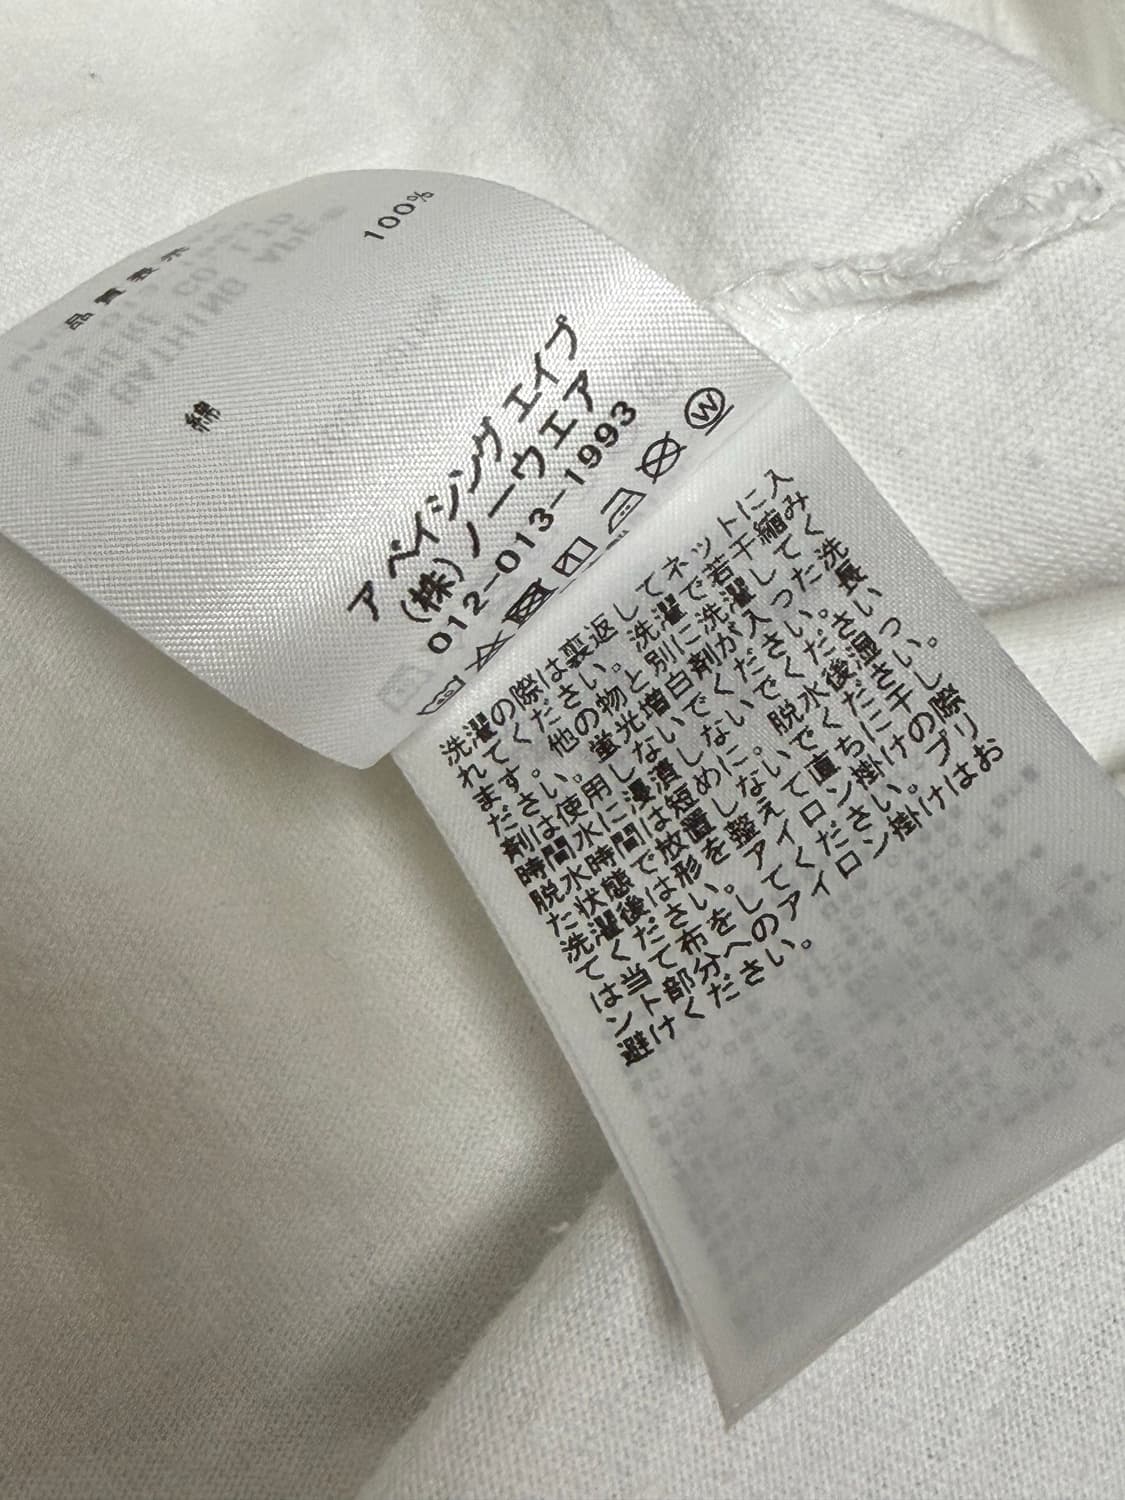 品質表示
綿 100%
ア ベイシング エイプ
(株)ノーウエア
012-013-1993
W
洗濯の際は裏返してネットに入
れてください。洗濯で若干縮み
ます。他の物と別に洗濯してく
ださい。蛍光増白剤が入った洗
剤は使用しないでください。長
時間水に浸漬しないでください
脱水時間は短めに。脱水後湿っ
た状態で放置しないでください。
洗濯後は形を整えて直ちに干し
てください。アイロン掛けの際
は当て布をしてください。プリ
ント部分へのアイロン掛けはお
避けください。